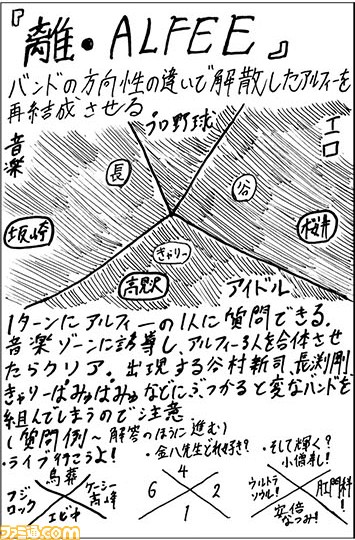 『離・ALFEE』
バンドの方向性の違いで解散したアルフィーを
再結成させる
プロ野球
エロ
音楽
長
谷
坂崎
桜井
きゃりー
高見沢
アイドル
1ターンにアルフィーの1人に質問できる。
音楽ゾーンに誘導し、アルフィー3人を合体させ
たらクリア。出現する谷村新司、長渕剛、
きゃりーぱみゅぱみゅなどにぶつかると変なバンドを
組んでしまうので注意
(質問例〜解答のほうに進む)
・ライブ行こうよ!
鳥幕
フジロック
ケーシー高峰
エビ中
・金八先生どれ好き?
4
6
2
1
・そして輝く?
小僧寿し!
ウルトラソウル!
肛門科!
安倍なつみ!
ファミ通.com